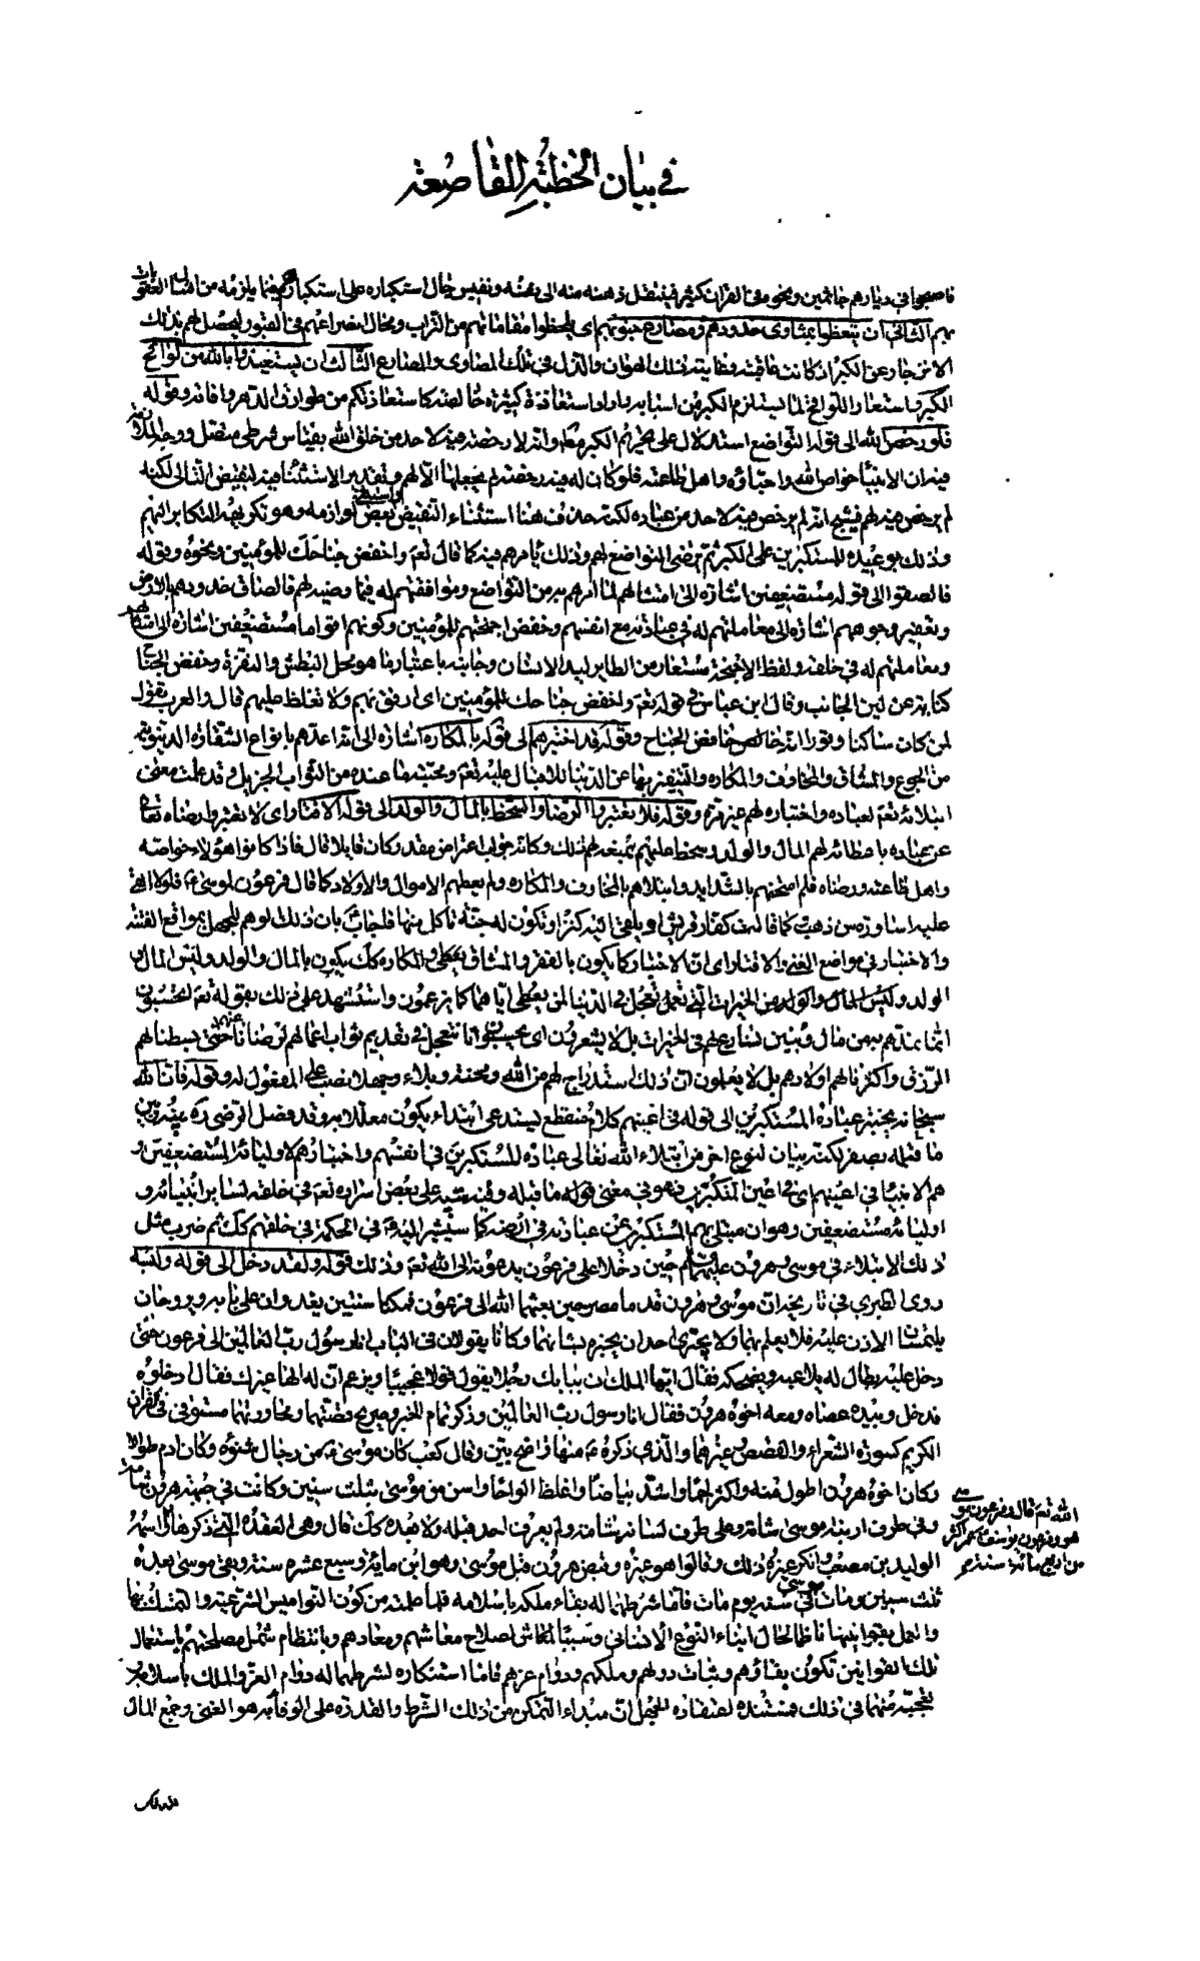 في بيان الخطبة القاصعة
فاصبحوا في ديارهم جاثمين ونحوه في القرآن كثير فينتقل ذهنه منه الى نفسه ونفيس حال استكباره على استكبارهم فيما يلزمه من امثال العقوبات
بهم الثاني ان يتعظوا بمثاوى خدودهم ومصارع جنوبهم اى يلحظوا مقاماتهم من التراب ومحال انصراعهم في القبور ليحصل لهم بذلك
الانزجار عن الكبر اذ كانت عاقبته وغايته تلك الهوان والذل في تلك المثاوى والمصارع الثالث ان يستعيذوا بالله من لواقح
الكبر واستعار اللواقح لما يستلزم الكبر من اسبابه واراد استعاذة كثيرة خالصة كاستعاذتكم من طوارق الدهر وافاته وقوله
فلو رخص الله الى قوله التواضع استدلال على تحريم الكبر مطلقا وانه لا رخصة فيه لاحد من خلق الله بقياس شرطي متصل ووجه الملازمة
فيه ان الانبيا خواص الله واحباؤه واهل طاعته فلو كان له فيه رخصة لم يجعلها الا لهم وتقدير الاستثنا فيه لنقيض التالى لكنه
لم يرخص فيه لهم فينتج انه لم يرخص فيه لاحد من عباده لكنه حذف هنا استثناء النقيض واستثنى بعض لوازمه وهو تكريهه التكابر اليهم
وذلك بوعيده للمستكبرين على الكبر ثم رضى التواضع لهم وذلك بامرهم فيه كما قال تعم واخفض جناحك للمؤمنين ونحوه وقوله
فالصقوا الى قوله مستضعفين اشارة الى امتثالهم لما امرهم به من التواضع وموافقتهم له فيما رضيه لهم فالصاق خدودهم بالارض
وتعفير وجوههم اشارة الى معاملتهم له في عبادته مع انفسهم وخفض اجنحتهم للمؤمنين وكونهم اقواما مستضعفين اشارة الى امتثالهم
ومعاملتهم له في خلقه ولفظ الاجنحة مستعار من الطاير ليد الانسان وجانبه باعتبار ما هو محل البطش والنفرة وخفض الجناح
كناية عن لين الجانب وقال ابن عباس في قوله تعم واخفض جناحك للمؤمنين اى ارفق بهم ولا تغلظ عليهم قال والعرب يقول
لمن كان ساكنا وقورا انه خافض الجناح وقوله قد اختبرهم الى قوله بالمكاره اشارة الى ابتداء عدهم بانواع الشقاوة الدنيوية
من الجوع والمشاق والمخاوف والمكاره والتنفير بها عن الدنيا للاقبال عليه تعم ومحبته ما عنده من الثواب الجزيل وقد علمت معنى
ابتلائه تعم لعباده واختباره لهم غير مرة وقوله فلا تعتبروا الرضا والسخط بالمال والولد الى قوله الاقتار اى لا تعتبروا رضاه تعالى
عن عباده باعطائه لهم المال والولد وسخطه عليهم بمنعه لهم ذلك وكانه جواب اعتراض مقدر كان قايلا قال فاذا كانوا هؤلاء خواصه
واهل طاعته ورضاه فلم امتحنهم بالشدايد وابتلاهم بالمخاوف والمكاره ولم يعطهم الاموال والاولاد كما قال فرعون لموسى ع فلولا القى
عليه اساورة من ذهب وكما قالت كفار قريش او يلقى اليه كنز او تكون له جنة ياكل منها فاجاب بان ذلك لوهم للجهل بمواقع الفتنة
والاختبار في مواضع الغنى والاقتار اى ان الاختبار كما يكون بالفقر والمشاق والمكاره كك يكون بالمال والولد وليس المال و
الولد وليس المال والولد من الخيرات التى تعجل في الدنيا لمن يعطى اياهما كما يزعمون واستشهد على ذلك بقوله تعم ايحسبون
انما نمدهم به من مال وبنين نسارع لهم في الخيرات بل لا يشعرون اى يحسبون انا نتعجل في تقديم ثواب اعمالهم لرضانا عنهم حتى بسطنا لهم
الرزق واكثرنا لهم اولادهم بل لا يعلمون ان ذلك استدراج لهم من الله ومحنة وبلاء وجهلا نصب على المفعول له وقوله فان الله
سبحانه يختبر عباده المستكبرين الى قوله في اعينهم كلام منقطع يستدعى ابتداء يكون معللا به وقد فصل الرضي ره بينه وبين
ما قبله بصفر لكنه بيان لنوع اخر من ابتلاء الله تعالى عباده المستكبرين في انفسهم واختبارهم لاوليائه المستضعفين و
هم الانبيا في اعينهم اى في اعين المتكبرين فهو في معنى قوله ما قبله وفيه تنبيه على بعض اسراره تعم في خلقه لساير انبيائه و
اوليائه مستضعفين وهو ان مبتلى بهم المستكبرين عن عبادته في ارضه كما سنشير اليه في الحكمة في خلقهم كك ثم ضرب مثل
ذلك الابتلاء في موسى وهرون عليهما السلام حين دخلا على فرعون يدعونه الى الله تعم وذلك قوله ولقد دخل الى قوله ولبسه
روى الطبري في تاريخه ان موسى وهرون قدما مصر حين بعثهما الله الى فرعون فمكثا سنتين يغدوان على بابه ويروحان
يلتمسان الاذن عليه فلا يعلم بهما ولا يجترى احد ان يخبره بشانهما وكانا يقولان في الباب انا رسول رب العالمين الى فرعون حتى
دخل عليه بطال له يلاعبه ويضحكه فقال ايها الملك ان ببابك رجلا يقول قولا عجيبا ويزعم ان له الها غيرك فقال ادخلوه
فدخل وبيده عصاه ومعه اخوه هرون فقال انا رسول رب العالمين وذكر تمام الخبر وصريح قصتهما ومحاورتهما مستوفى في القران
الكريم كسورة الشعراء والقصص وغيرهما والذى ذكره ع منها واضح بين وقال كعب كان موسى ع من رجال شنوءة وكان ادم طوالا
وكان اخوه هرون اطول منه واكثر لحما واشد بياضا واغلظ الواحا واسن من موسى بثلث سنين وكانت في جبهة هرون شامة
وفي طرف ارنبة موسى شامة وعلى طرف لسانه شامة ولم يعرف احد قبله ولا بعده كك قال وهي العقدة التى ذكرها
الوليد بن مصعب وانكر غيره ذلك وقالوا هو غيره وقبض هرون قبل موسى وهو ابن مائة وسبع عشره سنة وبقى موسى بعده
ثلث سنين ومات موسى في سنه يوم مات فاما شرطهما له بقاء ملكه باسلامه فلما علمته من كون النواميس الشرعية والتمسك بها
والعمل بقوانينها ناظما لحال ابناء النوع الانسانى وسببا لمعاش اصلاح معاشهم ومعادهم وبانتظام شمل مصلحتهم باستعمال
تلك القوانين تكون بقاؤهم وثبات دولهم وملكهم ودوام عزهم فاما استنكاره لشرطهما له دوام العز والملك باسلامه و
تعجبه منهما في ذلك فمستنده لاعتقاده للجهل ان مبداء التمكن من ذلك الشرط والقدرة على الوفا به هو الغنى وجمع المال
الله تعم قال وفرعون موسى
هو فرعون يوسف عمر اكثر
من اربع مائة سنة